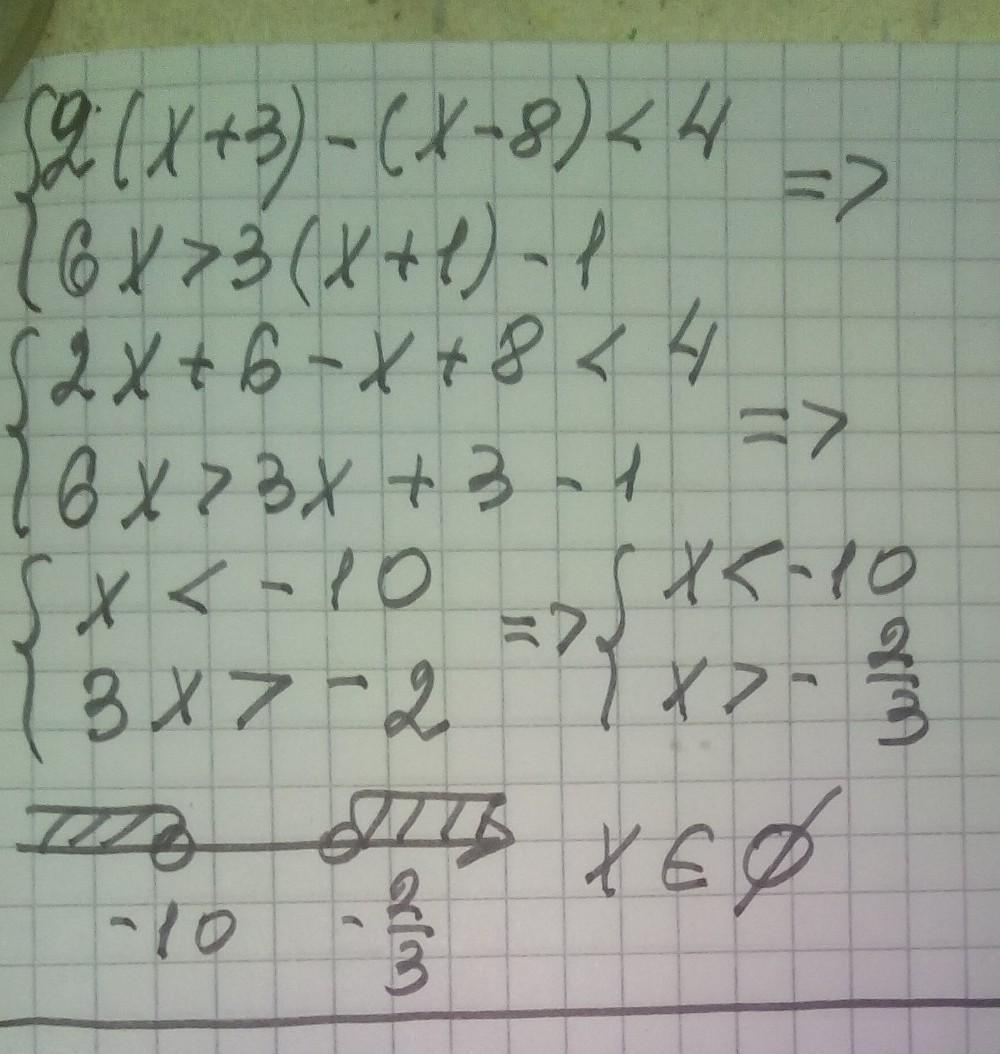 {2(x+3)-(x-8)<4 =>
{6x>3(x+1)-1
{2x+6-x+8<4 =>
{6x>3x+3-1
{x<-10 => {x<-10
{3x>-2 {x>-2/3
-10 -2/3 x∈∅